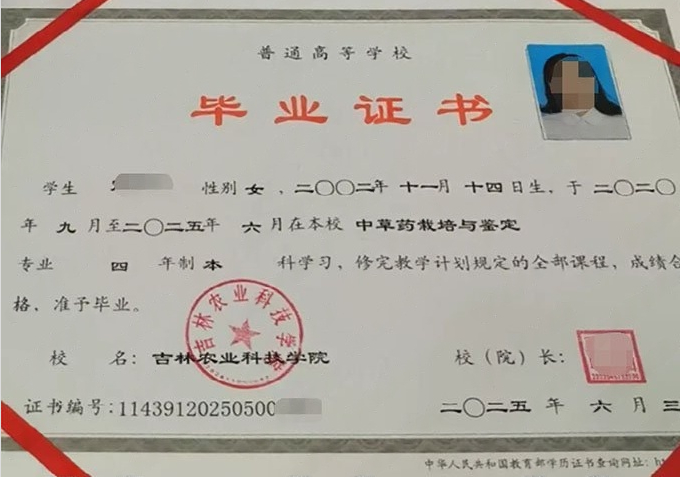 普通高等学校
毕业证书
学生 性别 女 ，二〇〇二年 十一月 十四日生，于 二〇二〇
年 九 月至二〇二五年 六 月在本校 中草药栽培与鉴定
专业 四 年制 本 科学习，修完教学计划规定的全部课程，成绩合
格，准予毕业。
吉林农业科技学院
校 名：吉林农业科技学院 校（院）长：
证书编号：11439120250500 二〇二五 年 六 月 三
中华人民共和国教育部学历证书查询网址：